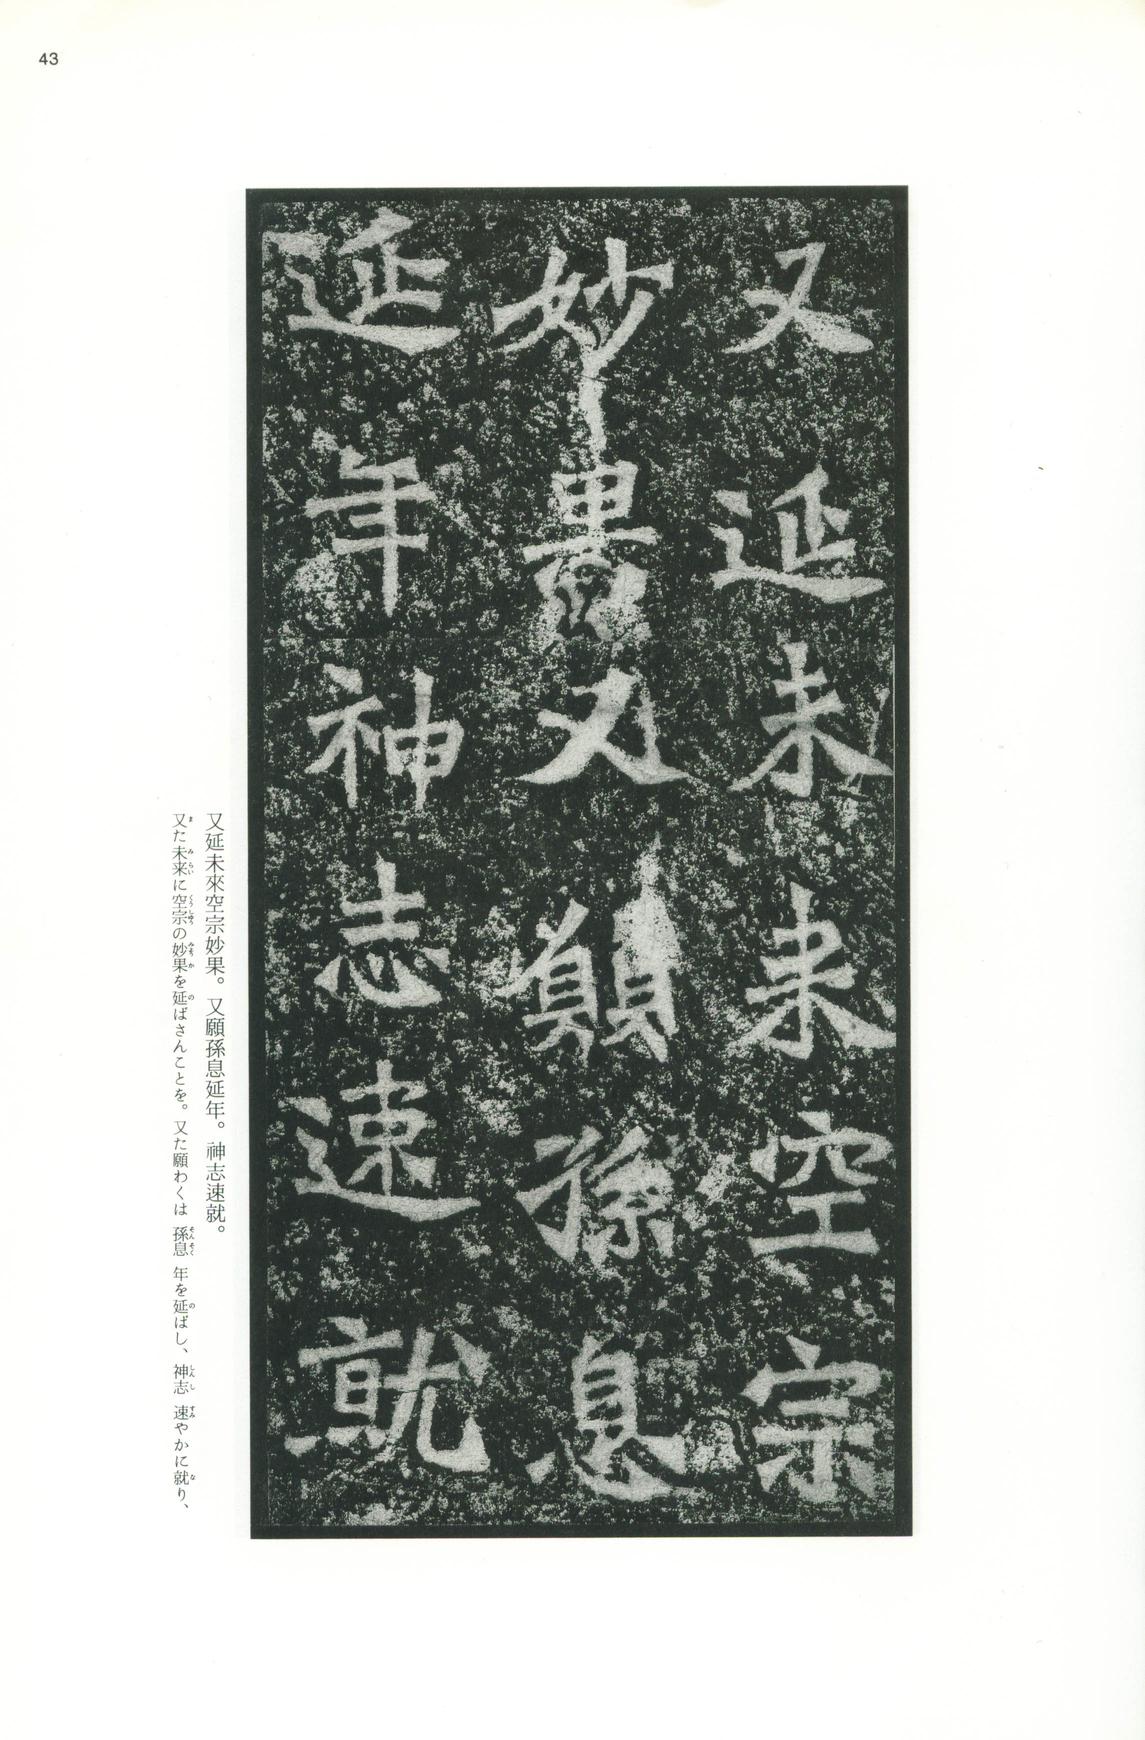 43
又延未来空宗
妙果又願孫息
延年神志速就
又延未來空宗妙果。又願孫息延年。神志速就。
又た未来に空宗の妙果を延ばさんことを。又た願わくは孫息年を延ばし、神志速やかに就り、